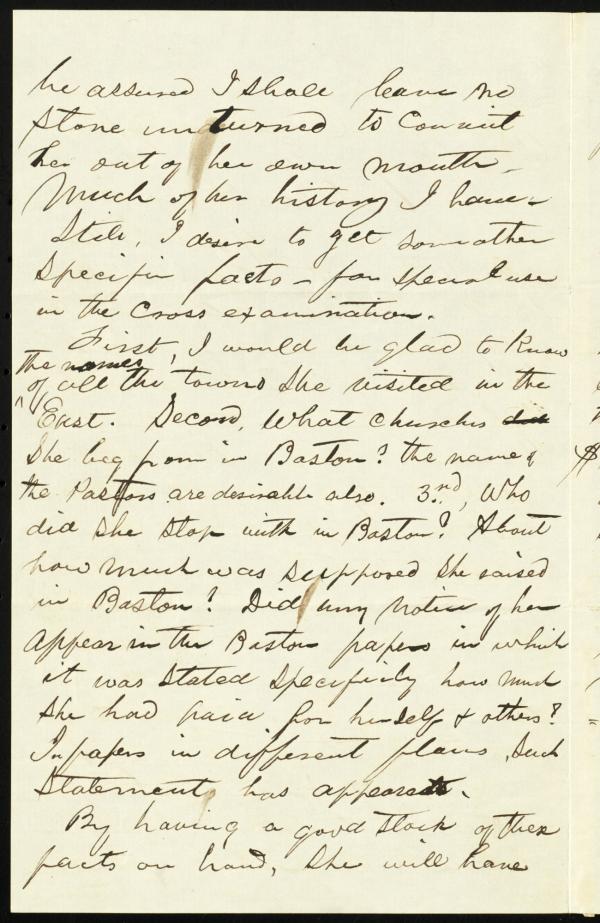 be assured I shall leave no
stone unturned to convict
her out of her own mouth –
Much of her history I have –
Still, I desire to get some other
specific facts – for special use
in the cross examination.
First, I would be glad to know
the names
of all the towns she visited in the
East. Second, What churches did
she beg from in Boston? the name of
the Pastors are desirable also. 3rd, Who
did she stop with in Boston? About
how much was supposed she raised
in Boston? Did any notice of her
appear in the Boston papers in which
it was stated specificily how much
she had paid for herself & others?
In papers in different places, such
statements has appeared.
By having a good stock of these
facts on hand, she will have